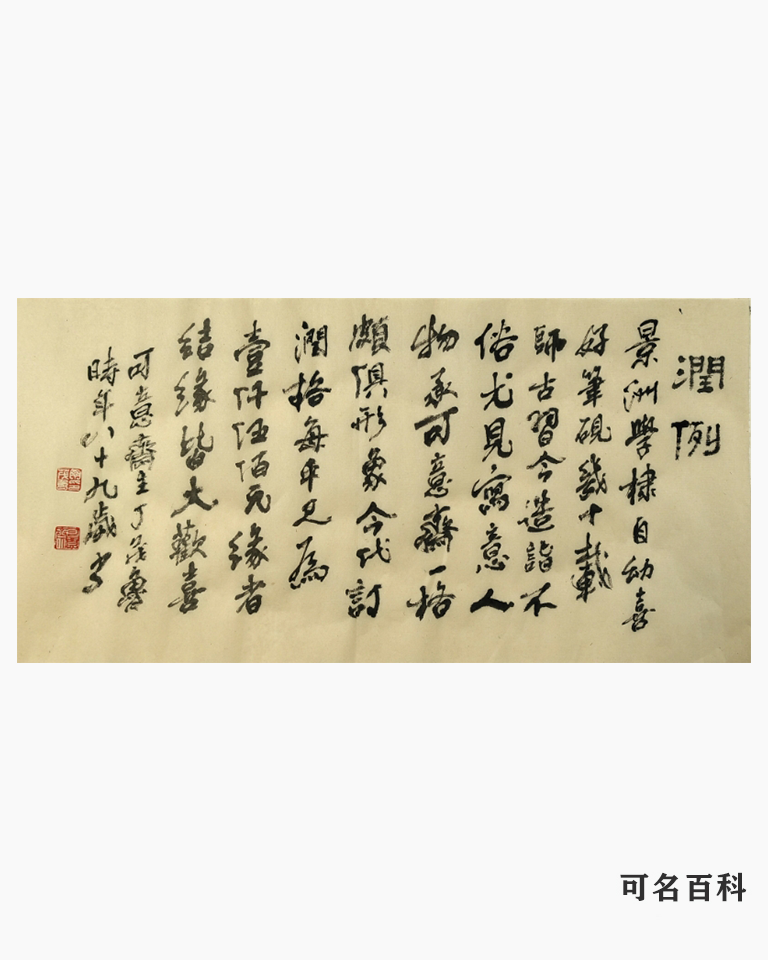 潤例
景洲學棣自幼喜
好筆硯幾十載
師古習今造詣不
俗尤見寫意人
物承可意齋一格
頗俱形象今代訂
潤格每平尺為
壹仟伍佰元緣者
結緣皆大歡喜
可意齋主丁茂魯
時年八十九歲書
可名百科